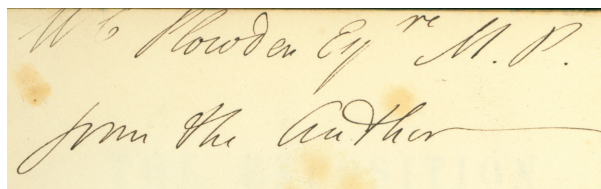 W C Plowden Esqre M.P.
from the Author